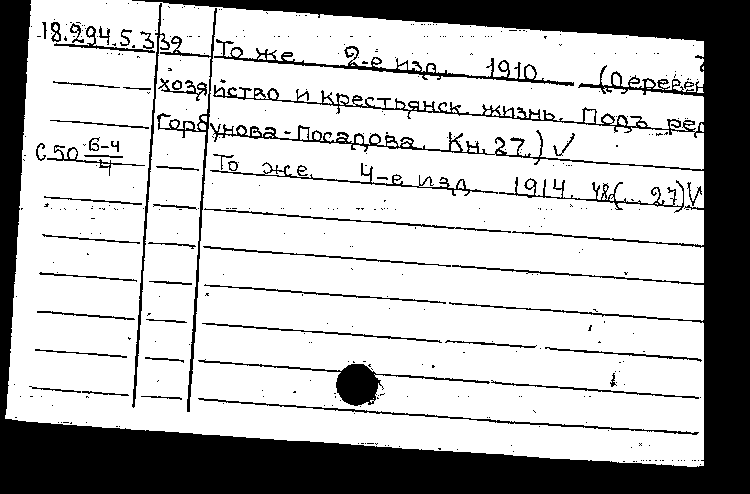 18.294.5.339 То же. 2-е изд. 1910. (Деревен
хозяйство и крестьянск. жизнь. Подъ ред
Горбунова-Посадова. Кн. 27.) √
С 50 6-4/4 То же. 4-е изд. 1914. (... 27) √